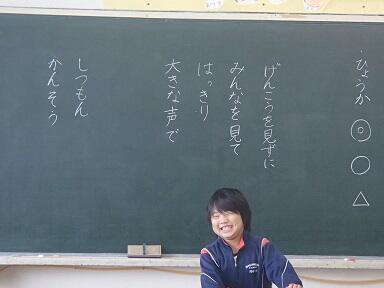 ・ひょうか ◎ ○ △
げんこうを見ずに
みんなを見て
はっきり
大きな声で
しつもん
かんそう